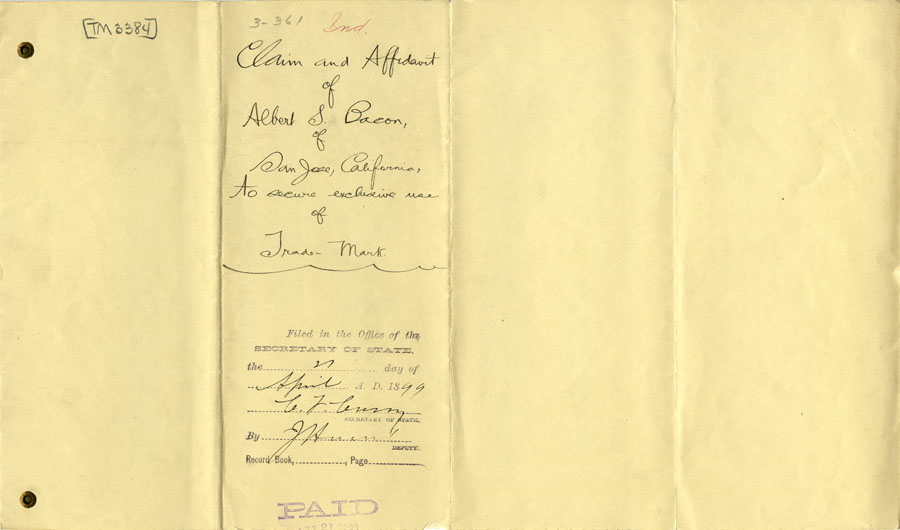 [TM3384]
3-361 Ind.
Claim and Affidavit
of
Albert S. Bacon,
of
San Jose, California,
To secure exclusive use
of
Trade-Mark.
Filed in the Office of the
SECRETARY OF STATE,
the 21 day of
April A. D. 1899
C. F. Curry
SECRETARY OF STATE.
By
DEPUTY.
Record Book, , Page
PAID